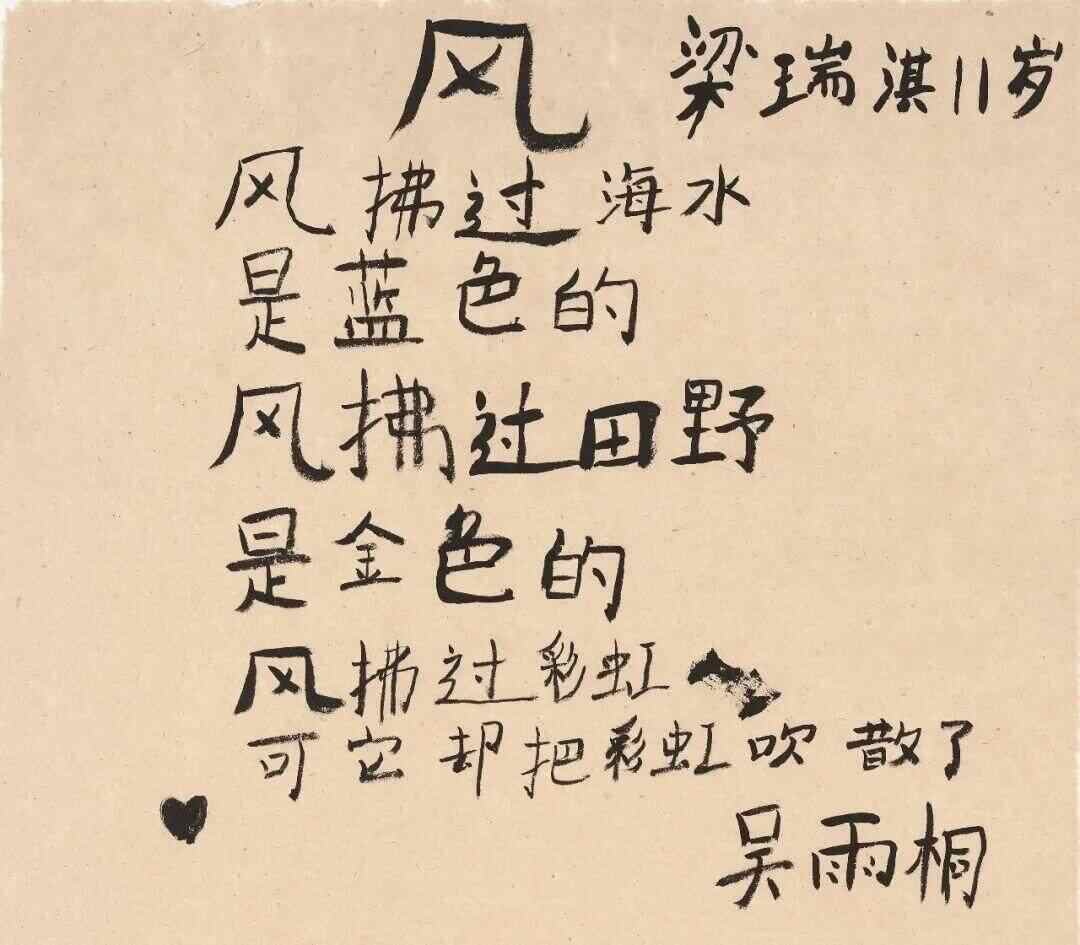 风 梁瑞淇11岁
风拂过海水
是蓝色的
风拂过田野
是金色的
风拂过彩虹
可它却把彩虹吹散了
吴雨桐